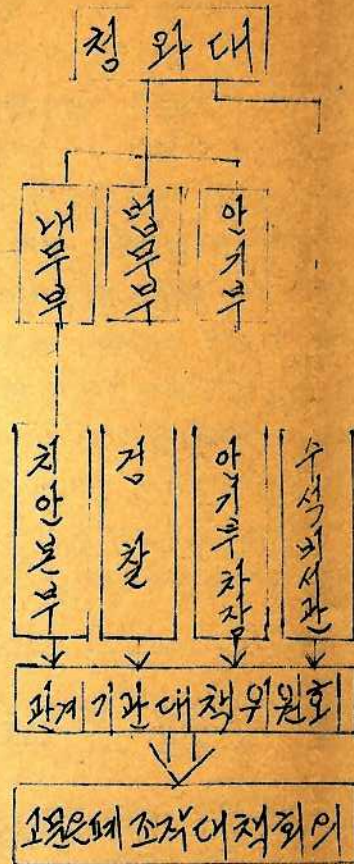 청 와 대
내무부
법무부
안기부
치안본부
검찰
안기부차장
수석비서관
관계기관대책위원회
고문은폐조작대책회의